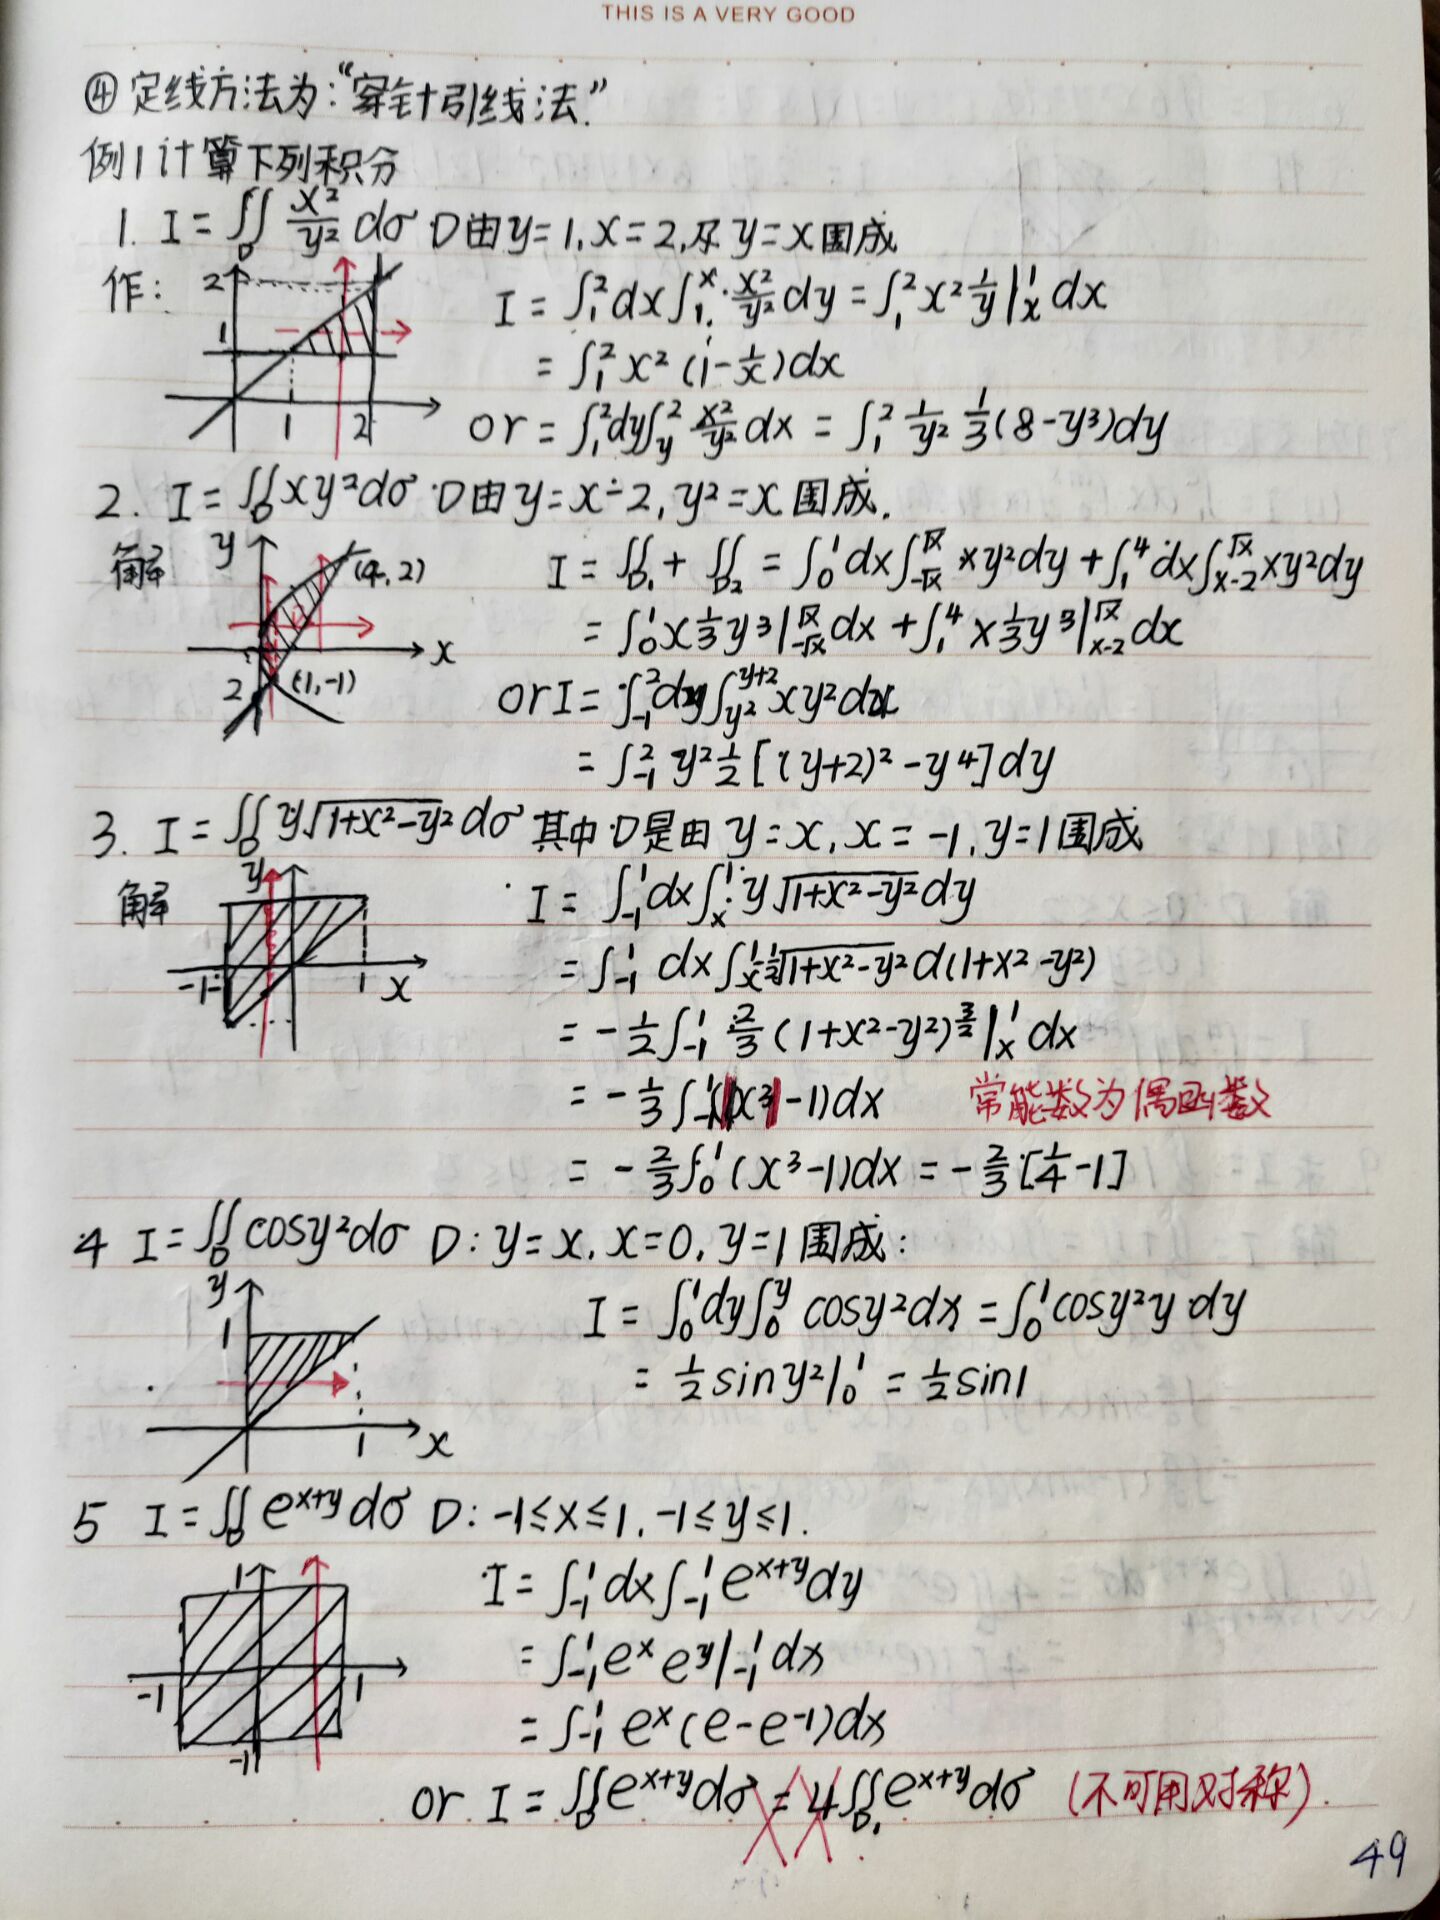 THIS IS A VERY GOOD
④定线方法为:“穿针引线法.”
例1 计算下列积分
1. I = ∬_D x²/y² dσ D由y=1, x=2, 及 y=x围成
作:
2
1
1 2
I = ∫₁² dx ∫₁ˣ x²/y² dy = ∫₁² x² 1/y |ₓ¹ dx
= ∫₁² x² (1 - 1/x) dx
or = ∫₁² dy ∫_y² x²/y² dx = ∫₁² 1/y² 1/3 (8-y³) dy
2. I = ∬_D xy² dσ D由 y=x-2, y²=x 围成.
解
y
(4,2)
x
2 (1,-1)
I = ∬_D₁ + ∬_D₂ = ∫₀¹ dx ∫_{-√x}^{√x} xy² dy + ∫₁⁴ dx ∫_{x-2}^{√x} xy² dy
= ∫₀¹ x 1/3 y³ |_{-√x}^{√x} dx + ∫₁⁴ x 1/3 y³ |_{x-2}^{√x} dx
or I = ∫₋₁² dy ∫_{y²}^{y+2} xy² dx
= ∫₋₁² y² 1/2 [(y+2)² - y⁴] dy
3. I = ∬_D y√(1+x²-y²) dσ 其中D是由 y=x, x=-1, y=1围成
解
y
-1 1 x
I = ∫₋₁¹ dx ∫ₓ¹ y√(1+x²-y²) dy
= ∫₋₁¹ dx ∫ₓ¹ -1/2 √(1+x²-y²) d(1+x²-y²)
= -1/2 ∫₋₁¹ 2/3 (1+x²-y²)^{3/2} |ₓ¹ dx
= -1/3 ∫₋₁¹ (|x³| -1) dx 常能数为偶函数
= -2/3 ∫₀¹ (x³-1) dx = -2/3 [1/4 -1]
4 I = ∬_D cosy² dσ D: y=x, x=0, y=1围成:
y
1
1 x
I = ∫₀¹ dy ∫₀^y cosy² dx = ∫₀¹ cosy² y dy
= 1/2 siny² |₀¹ = 1/2 sin1
5 I = ∬_D e^{x+y} dσ D: -1≤x≤1, -1≤y≤1.
1
-1 1
-1
I = ∫₋₁¹ dx ∫₋₁¹ e^{x+y} dy
= ∫₋₁¹ e^x e^y |₋₁¹ dx
= ∫₋₁¹ e^x (e-e⁻¹) dx
or I = ∬_D e^{x+y} dσ = 4∬_D₁ e^{x+y} dσ (不可用对称).
49